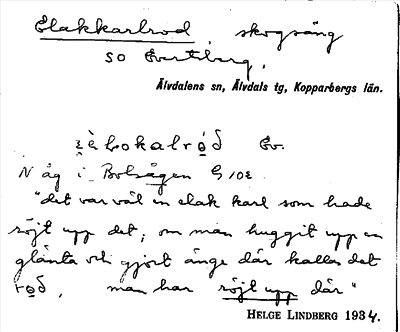 Elakkarlrod, skogsäng
SO Evertsberg,
Älvdalens sn, Älvdals tg, Kopparbergs län.
Ev.
N åg i Bolsågen G 102
"det var väl en elak karl som hade
röjt upp det; om man huggit upp en
glänta och gjort änge där kallas det
rod, man har röjt upp där"
HELGE LINDBERG 1934.